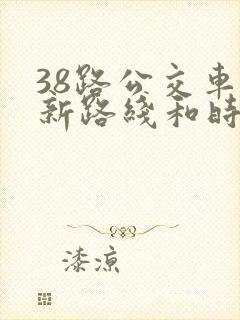 38路公交車
新路綫和時
漆涼